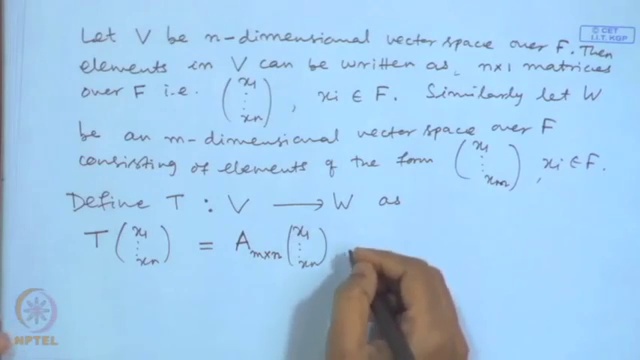 © CET
I.I.T. KGP
Let V be n-dimensional vector space over F. Then
elements in V can be written as, n×1 matrices
over F i.e. (x1 ⋮ xn), xi ∈ F. Similarly let W
be an m-dimensional vector space over F
consisting of elements of the form (x1 ⋮ xm), xi ∈ F.
Define T : V ⟶ W as
T(x1 ⋮ xn) = Am×n(x1 ⋮ xn)
NPTEL